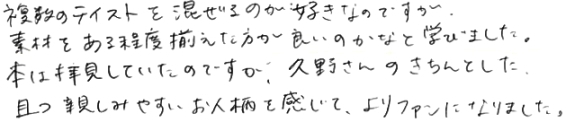 複数のテイストを混ぜるのが好きなのですが、
素材をある程度揃えた方が良いのかなと学びました。
本は拝見していたのですが、久野さんのきちんとした、
且つ親しみやすいお人柄を感じて、よりファンになりました。